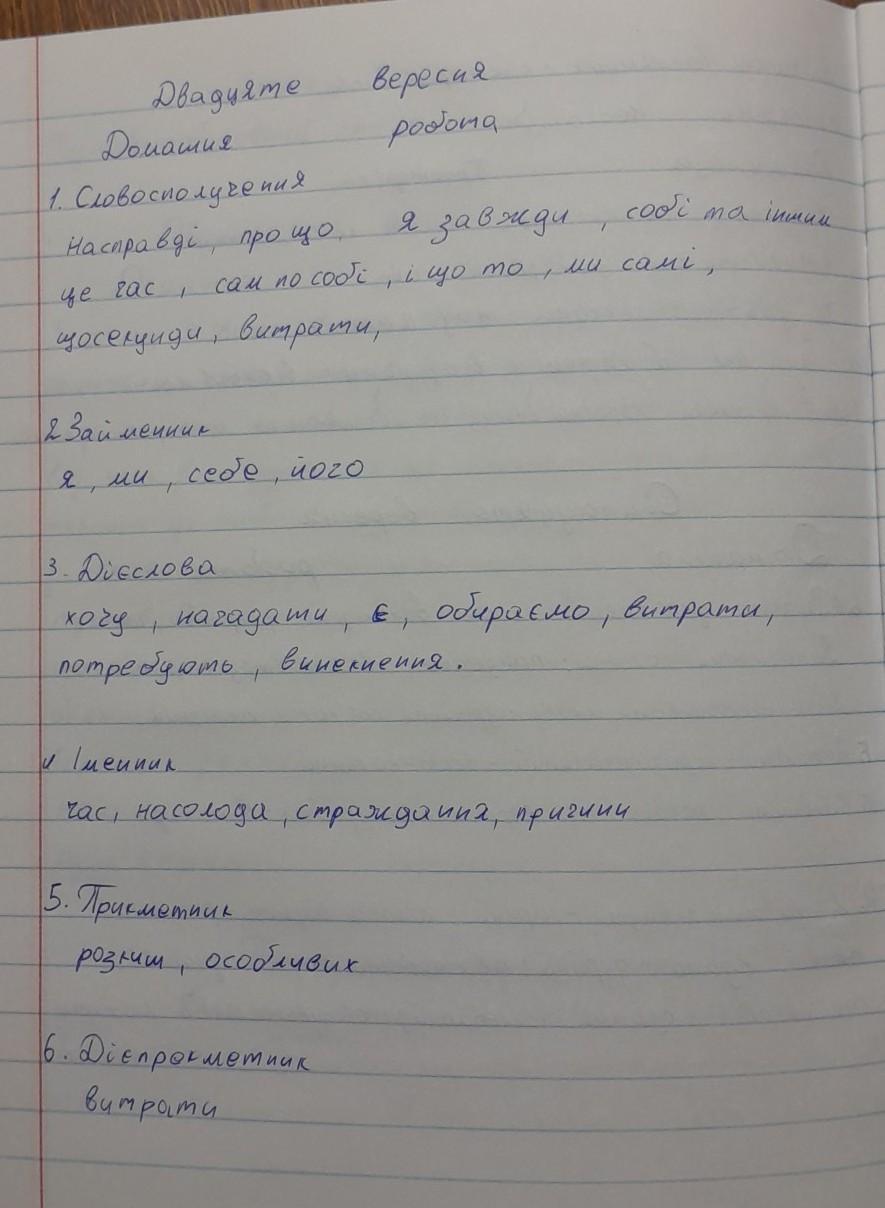 Двадцяте вересня
Домашня робота
1. Словосполучення
насправді, про що, я завжди, собі та іншим
це час, сам по собі, і що то, ми самі,
щосекунди, витрати,
2 Займенник
я, ми, себе, його
3. Дієслова
хочу, нагадати, є, обираємо, витрати,
потребують, винекнення.
4 Іменник
час, насолода, страждання, причини
5. Прикметник
розкиш, особливих
6. Дієпрокметник
витрати